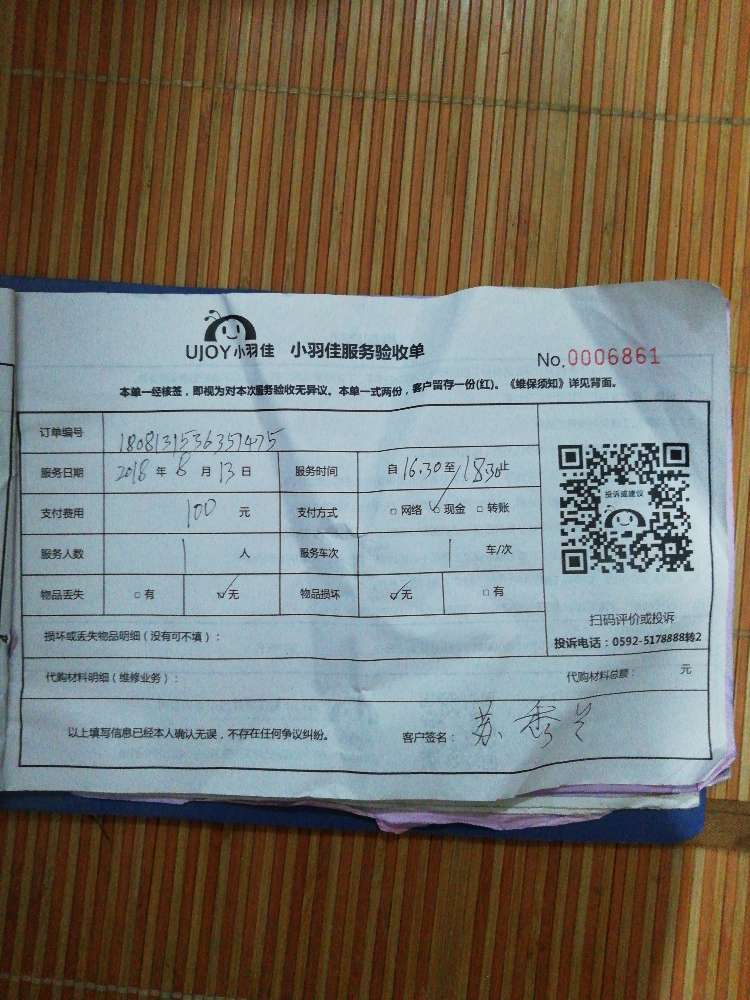 UJOY小羽佳 小羽佳服务验收单
No.0006861
本单一经核签，即视为对本次服务验收无异议。本单一式两份，客户留存一份(红)。《维保须知》详见背面。
订单编号 1808131536351475
服务日期 2018年8月13日 服务时间 自16.30至18.30止
支付费用 100 元 支付方式 □网络 ☑现金 □转账
服务人数 1 人 服务车次 1 车/次
物品丢失 □有 ☑无 物品损坏 ☑无 □有
投诉或建议
扫码评价或投诉
投诉电话：0592-5178888转2
损坏或丢失物品明细（没有可不填）：
代购材料明细（维修业务）： 代购材料总额： 元
以上填写信息已经本人确认无误，不存在任何争议纠纷。 客户签名： 苏秀兰